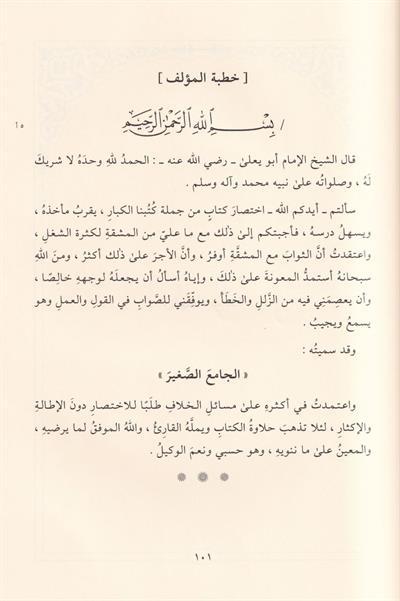 [ خطبة المؤلف ]
/ بِسْمِ اللهِ الرَّحْمٰنِ الرَّحِيْمِ
قال الشيخ الإمام أبو يعلىٰ ـ رضي الله عنه ـ : الحمدُ للهِ وحدَهُ لا شريكَ
لَهُ ، وصلواتُه علىٰ نبيه محمد وآله وسلم .
سألتم ـ أيدكم الله ـ اختصارَ كتابٍ من جملة كُتُبنا الكبارِ ، يقربُ مأخذُهُ ،
ويسهلُ درسهُ ، فأجبتكم إلىٰ ذلكَ مع ما عليّ من المشقةِ لكثرة الشغلِ ،
واعتقدتُ أنَّ الثوابَ مع المشقَّةِ أوفرُ ، وأنَّ الأجرَ علىٰ ذلكَ أكثرُ ، ومنَ اللهِ
سبحانهُ أستمدُّ المعونةَ علىٰ ذلكَ ، وإياهُ أسألُ أن يجعلَهُ لوجههِ خالِصًا ،
وأن يعصِمَنِي فيه من الزَّللِ والخَطَأ ، ويوفِّقني للصَّوابِ في القولِ والعملِ وهو
يسمعُ ويجيبُ .
وقد سميتُه :
« الجامع الصَّغيرَ »
واعتمدتُ في أكثرهِ علىٰ مسائلِ الخلافِ طلبًا للاختصارِ دونَ الإطالةِ
والإكثارِ ، لئلا تذهبَ حلاوةُ الكتابِ ويملَّهُ القارئُ ، واللهُ الموفقُ لما يرضيهِ ،
والمعينُ علىٰ ما ننويهِ ، وهو حسبي ونعمَ الوكيلُ .
١٠١